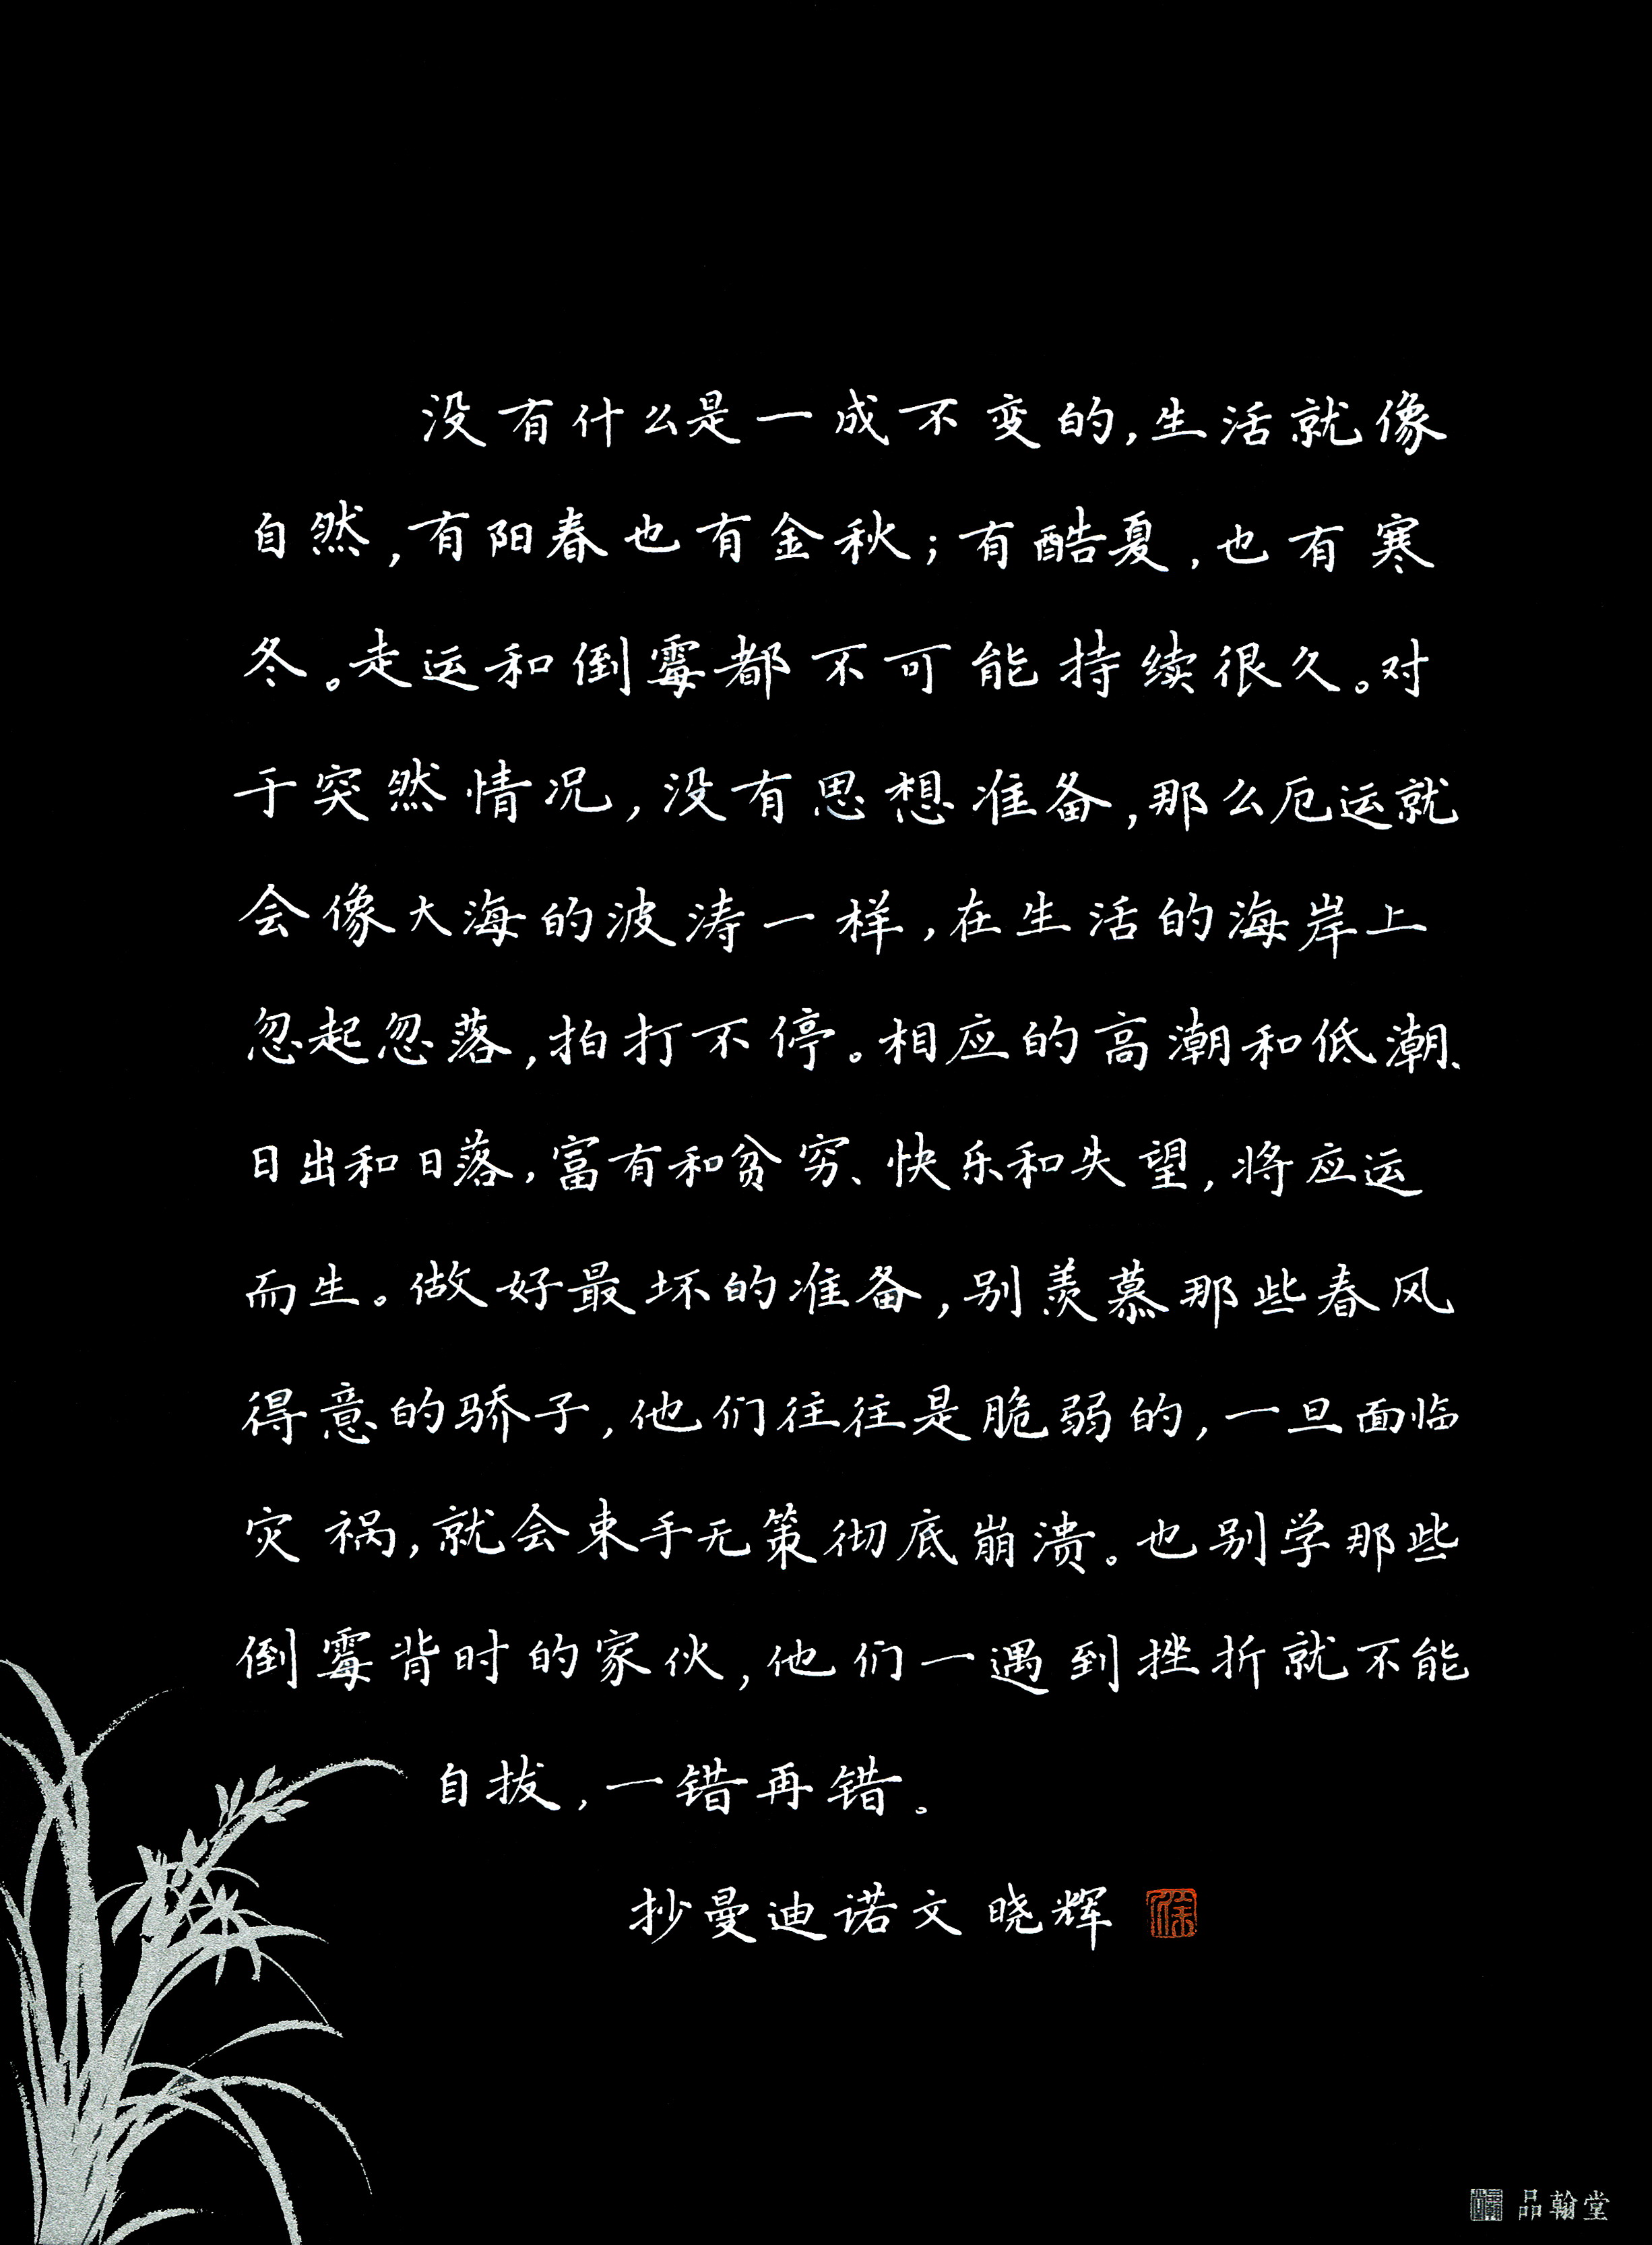 没有什么是一成不变的,生活就像
自然,有阳春也有金秋;有酷夏,也有寒
冬。走运和倒霉都不可能持续很久。对
于突然情况,没有思想准备,那么厄运就
会像大海的波涛一样,在生活的海岸上
忽起忽落,拍打不停。相应的高潮和低潮、
日出和日落,富有和贫穷、快乐和失望,将应运
而生。做好最坏的准备,别羡慕那些春风
得意的骄子,他们往往是脆弱的,一旦面临
灾祸,就会束手无策彻底崩溃。也别学那些
倒霉背时的家伙,他们一遇到挫折就不能
自拔,一错再错。
抄曼迪诺文晓辉
品翰堂